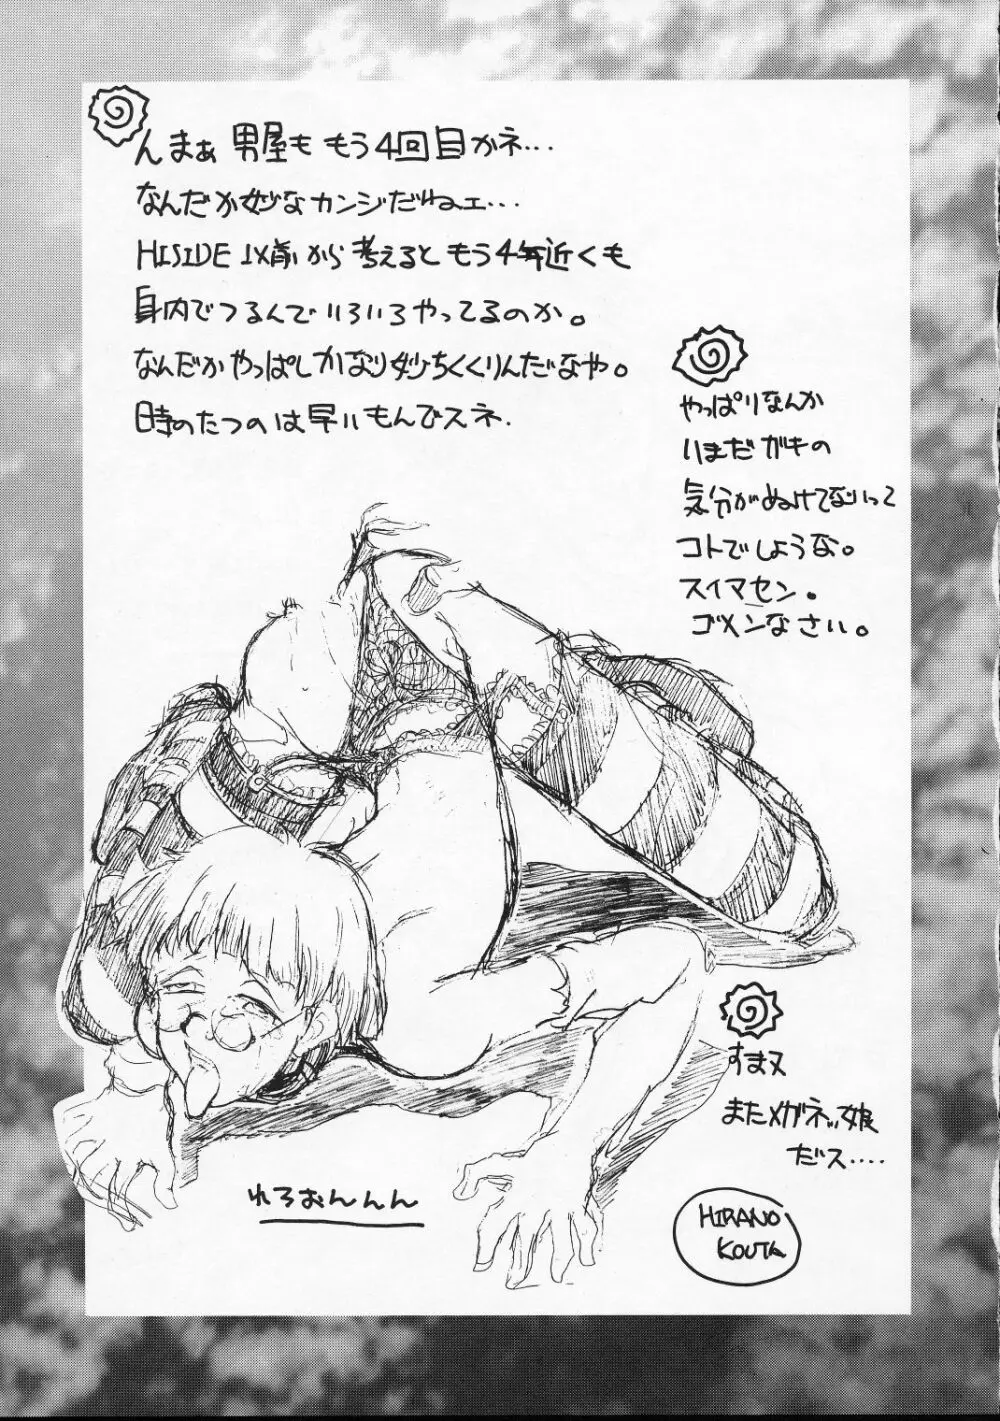 んまぁ 男屋も もう4回目かネ...
なんだか妙なカンジだねェ...
HISIDE以前から考えると もう4年近くも
身内でつるんで いろいろやってるのか。
なんだかやっぱしかなり妙ちくくりんだなや。
時のたつのは早いもんでスネ.
やっぱりなんか
いまだガキの
気分がぬけてないって
コトでしょうな。
スイマセン。
ゴメンなさい。
すまヌ
またメガネッ娘
だス....
れろおんんん
HIRANO
KOUTA